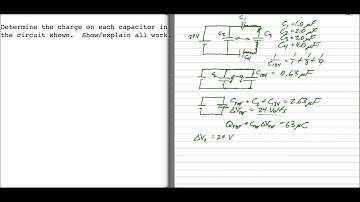 Determine the charge on each capacitor in
the circuit shown. Show/explain all work.
C₁
24V
C₂
C₃
C₄
C₁ = 1.0 μF
C₂ = 2.0 μF
C₃ = 3.0 μF
C₄ = 4.0 μF
1/C₁₃₄ = 1/1 + 1/3 + 1/4
C₁₃₄ = 0.63 μF
C_TOT = C₂ + C₁₃₄ = 2.63 μF
ΔV_TOT = 24 Volts
Q_TOT = C_TOT ΔV_TOT = 63 μC
ΔV₂ = 24 V